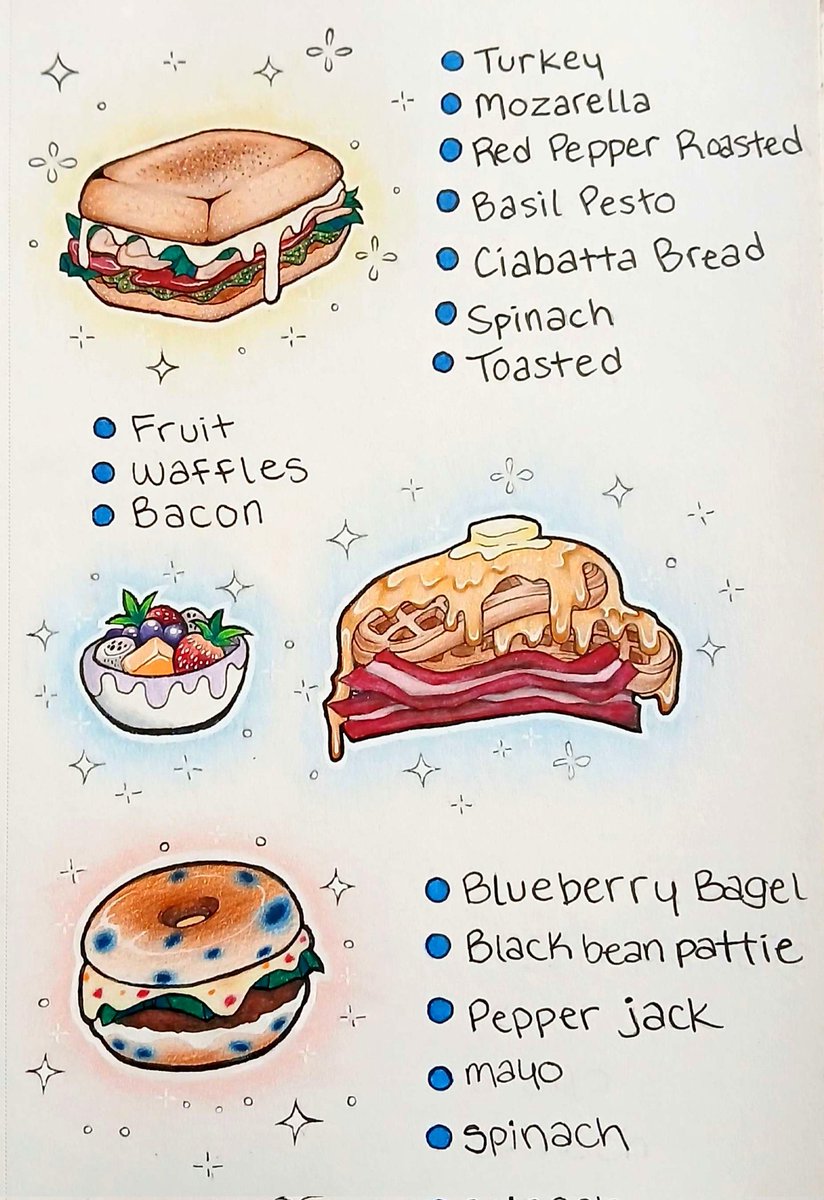 Turkey
mozarella
Red Pepper Roasted
Basil Pesto
Ciabatta Bread
Spinach
Toasted
Fruit
waffles
Bacon
Blueberry Bagel
Black bean pattie
Pepper jack
mayo
spinach